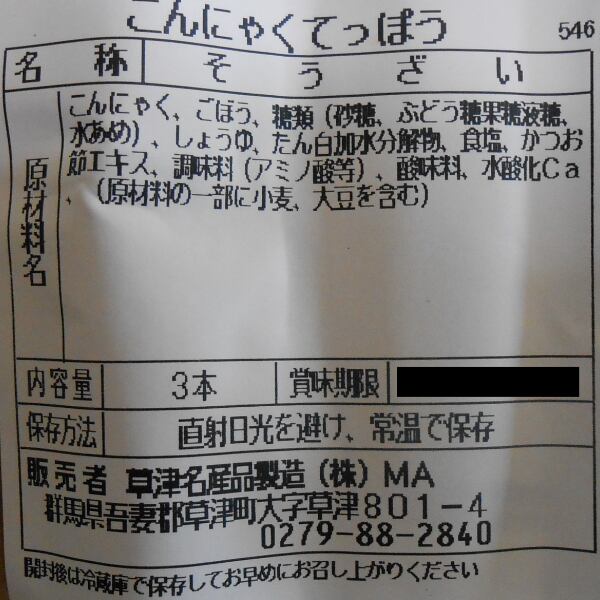 こんにゃくてっぽう
546
名称 そうざい
原材料名
こんにゃく、ごぼう、糖類（砂糖、ぶどう糖果糖液糖、
水あめ）、しょうゆ、たん白加水分解物、食塩、かつお
節エキス、調味料（アミノ酸等）、酸味料、水酸化Ca
、（原材料の一部に小麦、大豆を含む）
内容量 3本 賞味期限
保存方法 直射日光を避け、常温で保存
販売者 草津名産品製造（株）MA
群馬県吾妻郡草津町大字草津801-4
0279-88-2840
開封後は冷蔵庫で保存してお早めにお召し上がりください